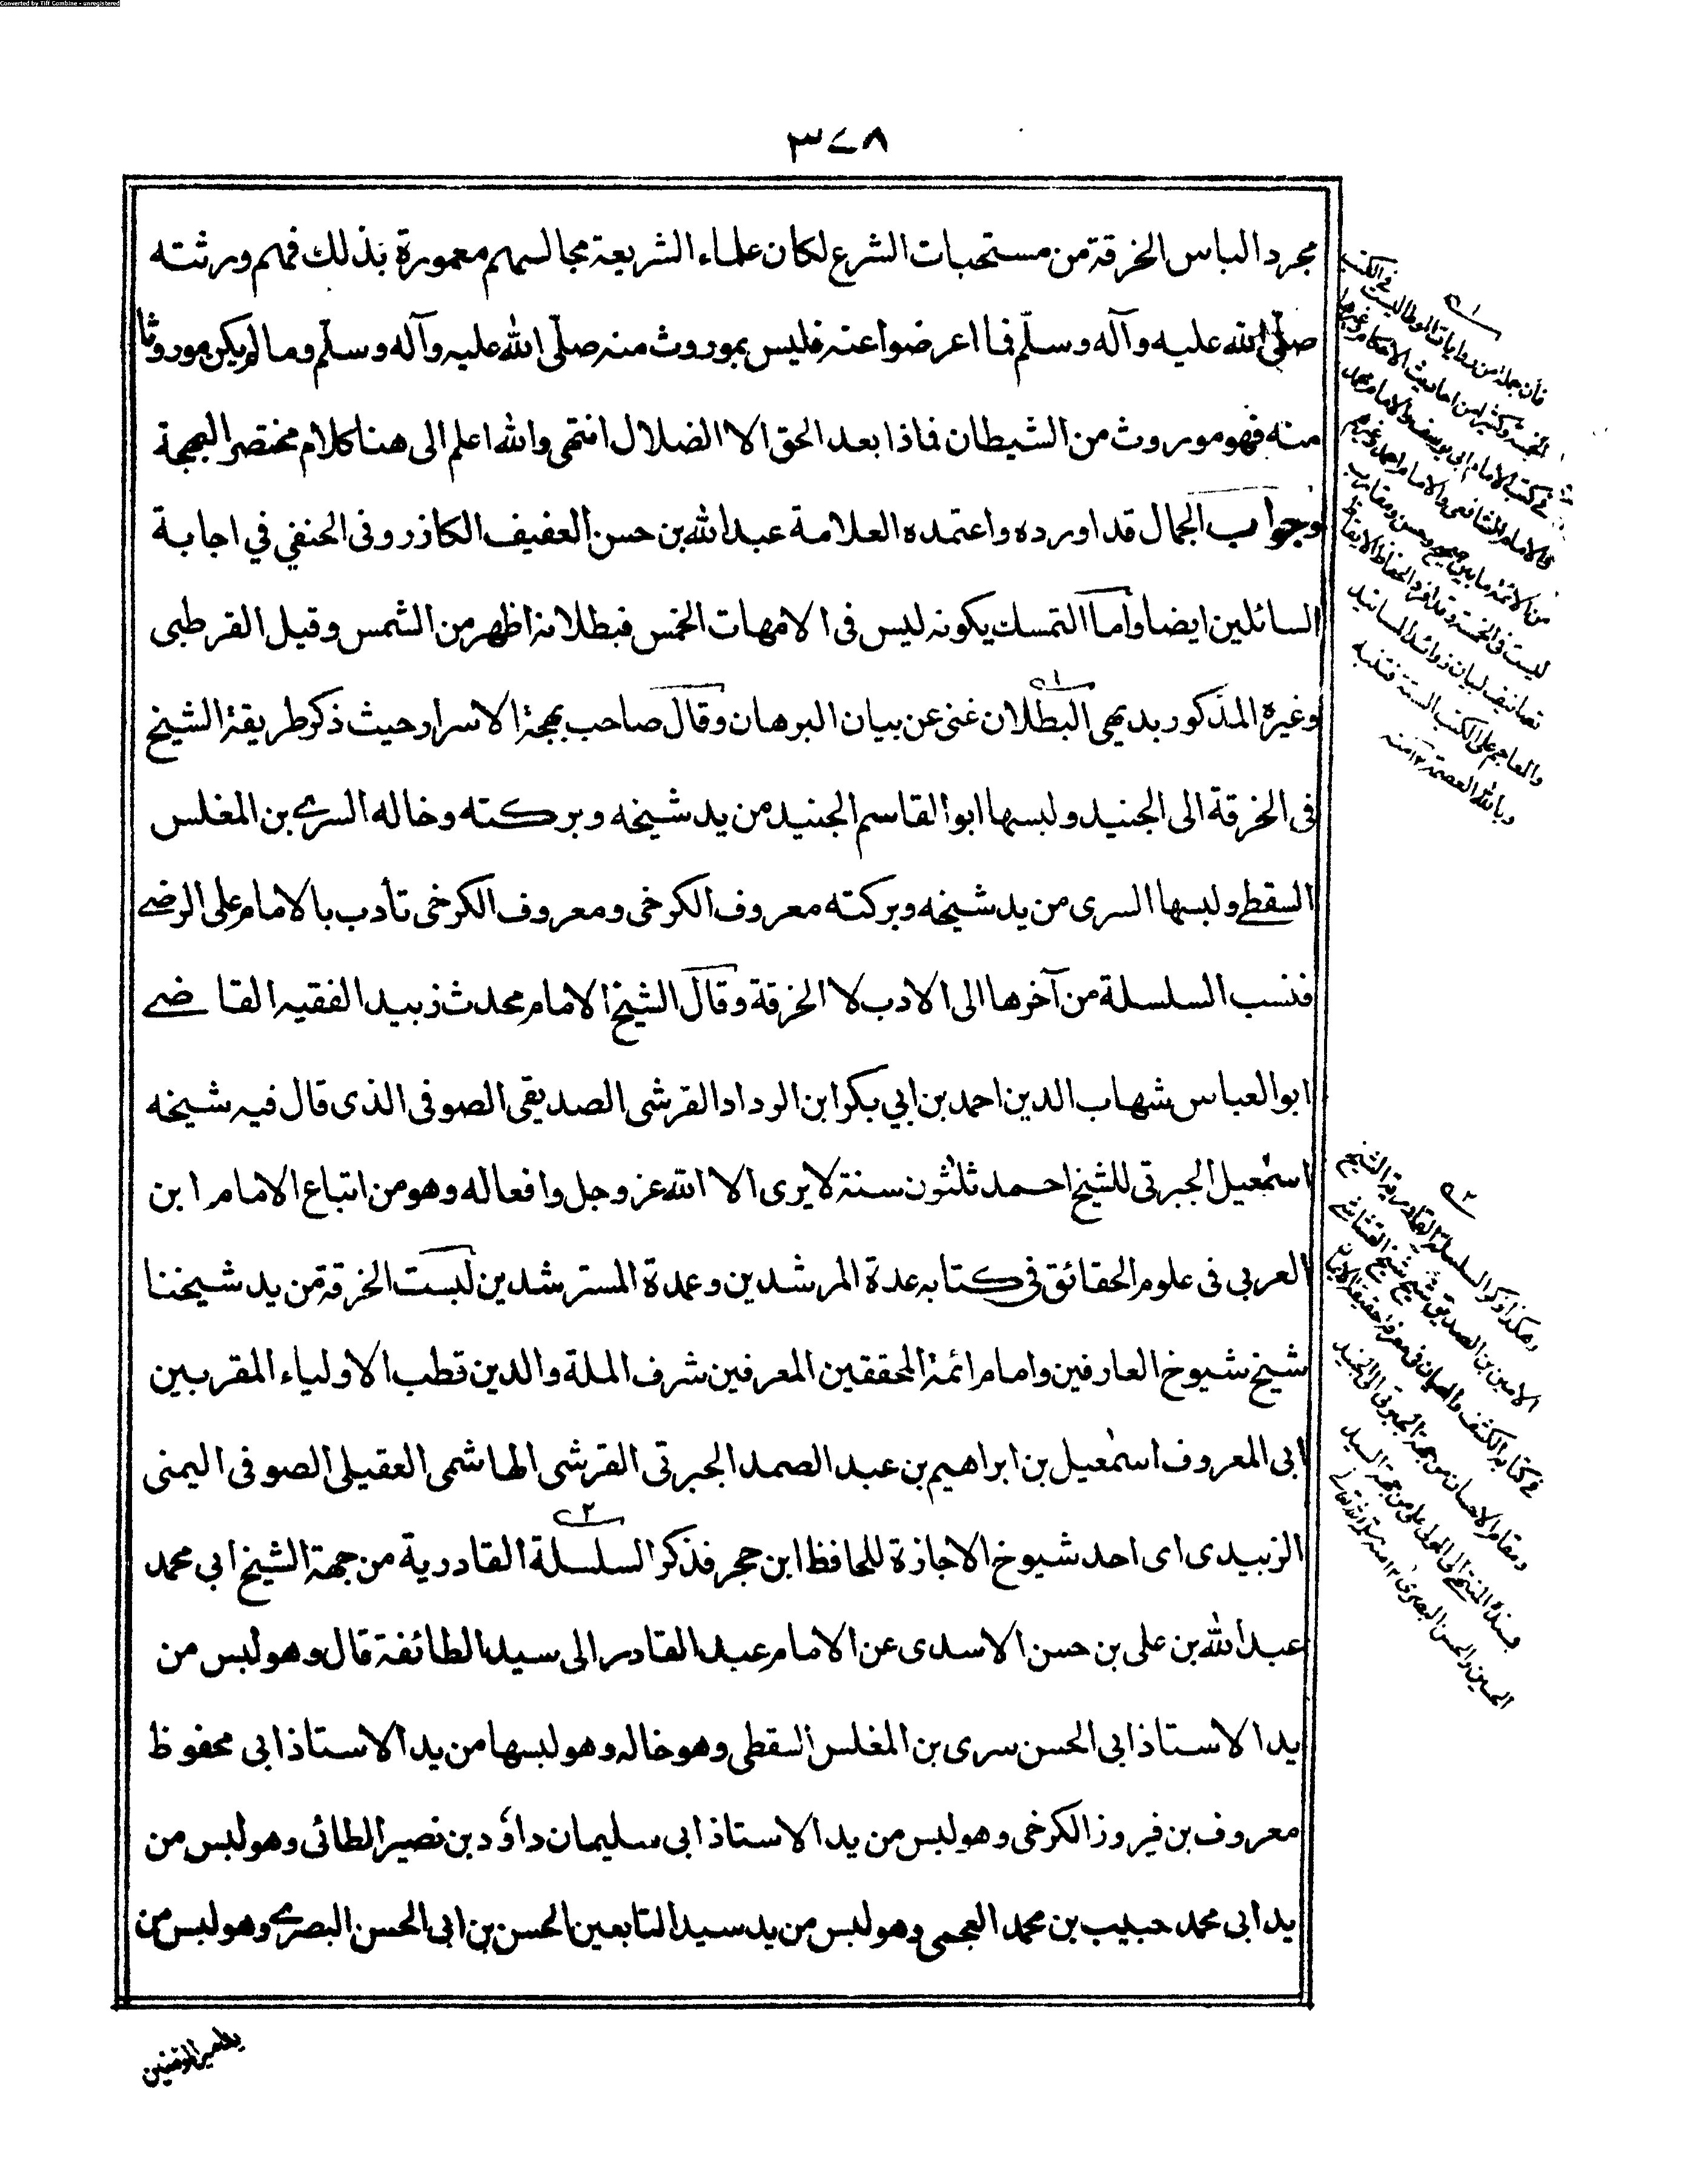 Converted by Tiff Combine - unregistered
٣٤٨
مجرد الباس الخرقة من مستحبات الشرع لكان علماء الشريعة مجالسهم معمورة بذلك فهم ورثته
صلّى الله عليه وآله وسلّم فما اعرضوا عنه فليس بموروث منه صلّى الله عليه وآله وسلّم وما لم يكن موروثا
منه فهو موروث من الشيطان فماذا بعد الحق الا الضلال انتهى والله اعلم الى هنا كلام مختصر البهجة
وجواب الجمال قد اورده واعتمده العلامة عبد الله بن حسن العفيف الكازرونى الحنفي في اجابة
السائلين ايضا وأما التمسك بكونه ليس فى الامهات الخمس فبطلانه اظهر من الشمس وقيل القرطبى
وغيره المذكور بديهى البطلان غنى عن بيان البرهان وقال صاحب بهجة الاسرار حيث ذكر طريقة الشيخ
فى الخرقة الى الجنيد ولبسها ابو القاسم الجنيد من يد شيخه وبركته وخاله السرى بن المغلس
السقطى ولبسها السرى من يد شيخه وبركته معروف الكرخى ومعروف الكرخى تأدب بالامام على الرضى
فنسب السلسلة من آخرها الى الادب لا الخرقة وقال الشيخ الامام محدث زبيد الفقيه القاضى
ابو العباس شهاب الدين احمد بن ابي بكر ابن الرداد القرشى الصديقى الصوفى الذى قال فيه شيخه
اسمٰعيل الجبرتى للشيخ احمد ثلثون سنة لا يرى الا الله عز وجل وافعاله وهو من اتباع الامام ابن
العربي فى علوم الحقائق فى كتابه عدة المرشدين وعمدة المسترشدين لبست الخرقة من يد شيخنا
شيخ شيوخ العارفين وامام ائمة المحققين المعرفين شرف الملة والدين قطب الاولياء المقربين
ابى المعروف اسمٰعيل بن ابراهيم بن عبد الصمد الجبرتى القرشى الهاشمى العقيلى الصوفى اليمنى
الزبيدى اى احد شيوخ الاجازة للحافظ ابن حجر فذكر السلسلة القادرية من جهة الشيخ ابى محمد
عبد الله بن على بن حسن الاسدى عن الامام عبد القادر الى سيد الطائفة قال وهو لبس من
يد الاستاذ ابى الحسن سرى بن المغلس السقطى وهو خاله وهو لبسها من يد الاستاذ ابى محفوظ
معروف بن فيروز الكرخى وهو لبس من يد الاستاذ ابى سليمان داؤد بن نصير الطائى وهو لبس من
يد ابى محمد حبيب بن محمد العجمى وهو لبس من يد سيد التابعين الحسن بن ابى الحسن البصرى وهو لبس من
١
فان جملة من روايات الموطا ليست فى الكتب
الخمسة وكثير من احاديث الاحكام وغيرها
فى كتب الامام ابى يوسف والامام محمد
والامام الشافعى والامام احمد وغيرهم
من الائمة ما بين صحيح وحسن ومقارب
ليست فى الخمسة وقد افرد الحفاظ الايقاظ
تصانيف لبيان زوائد المسانيد
والمعاجم على الكتب الستة فتنبه
وبالله العصمة ١٢ منه
٢
وهكذا ذكر السلسلة القادرية الشيخ
الامين بن الصديق شيخ شيخ القشاشى
فى كتابه الكشف والبيان فى معرفة حقيقة الايمان
ومقام الاحسان من جهة الجبرتى الى الجنيد
بسنده المنتهى الى المولى على من جهة السيد
الحسين والحسن البصرى ١٢ منه سلمه الله تعالى
يد امير المؤمنين